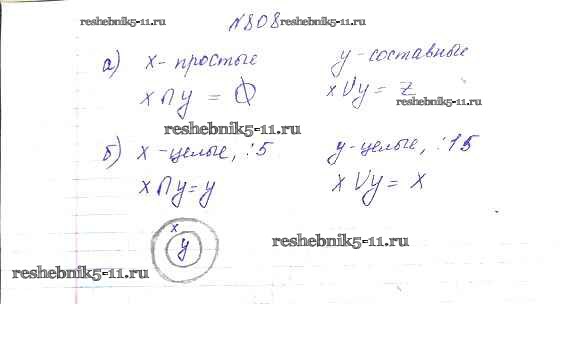 reshebnik5-11.ru №808 reshebnik5-11.ru
а) x - простые y - составные
x ∩ y = ∅ x ∪ y = Z
reshebnik5-11.ru
reshebnik5-11.ru
б) x - целые, ⋮5 y - целые, ⋮15
x ∩ y = y x ∪ y = x
x
y
reshebnik5-11.ru
reshebnik5-11.ru